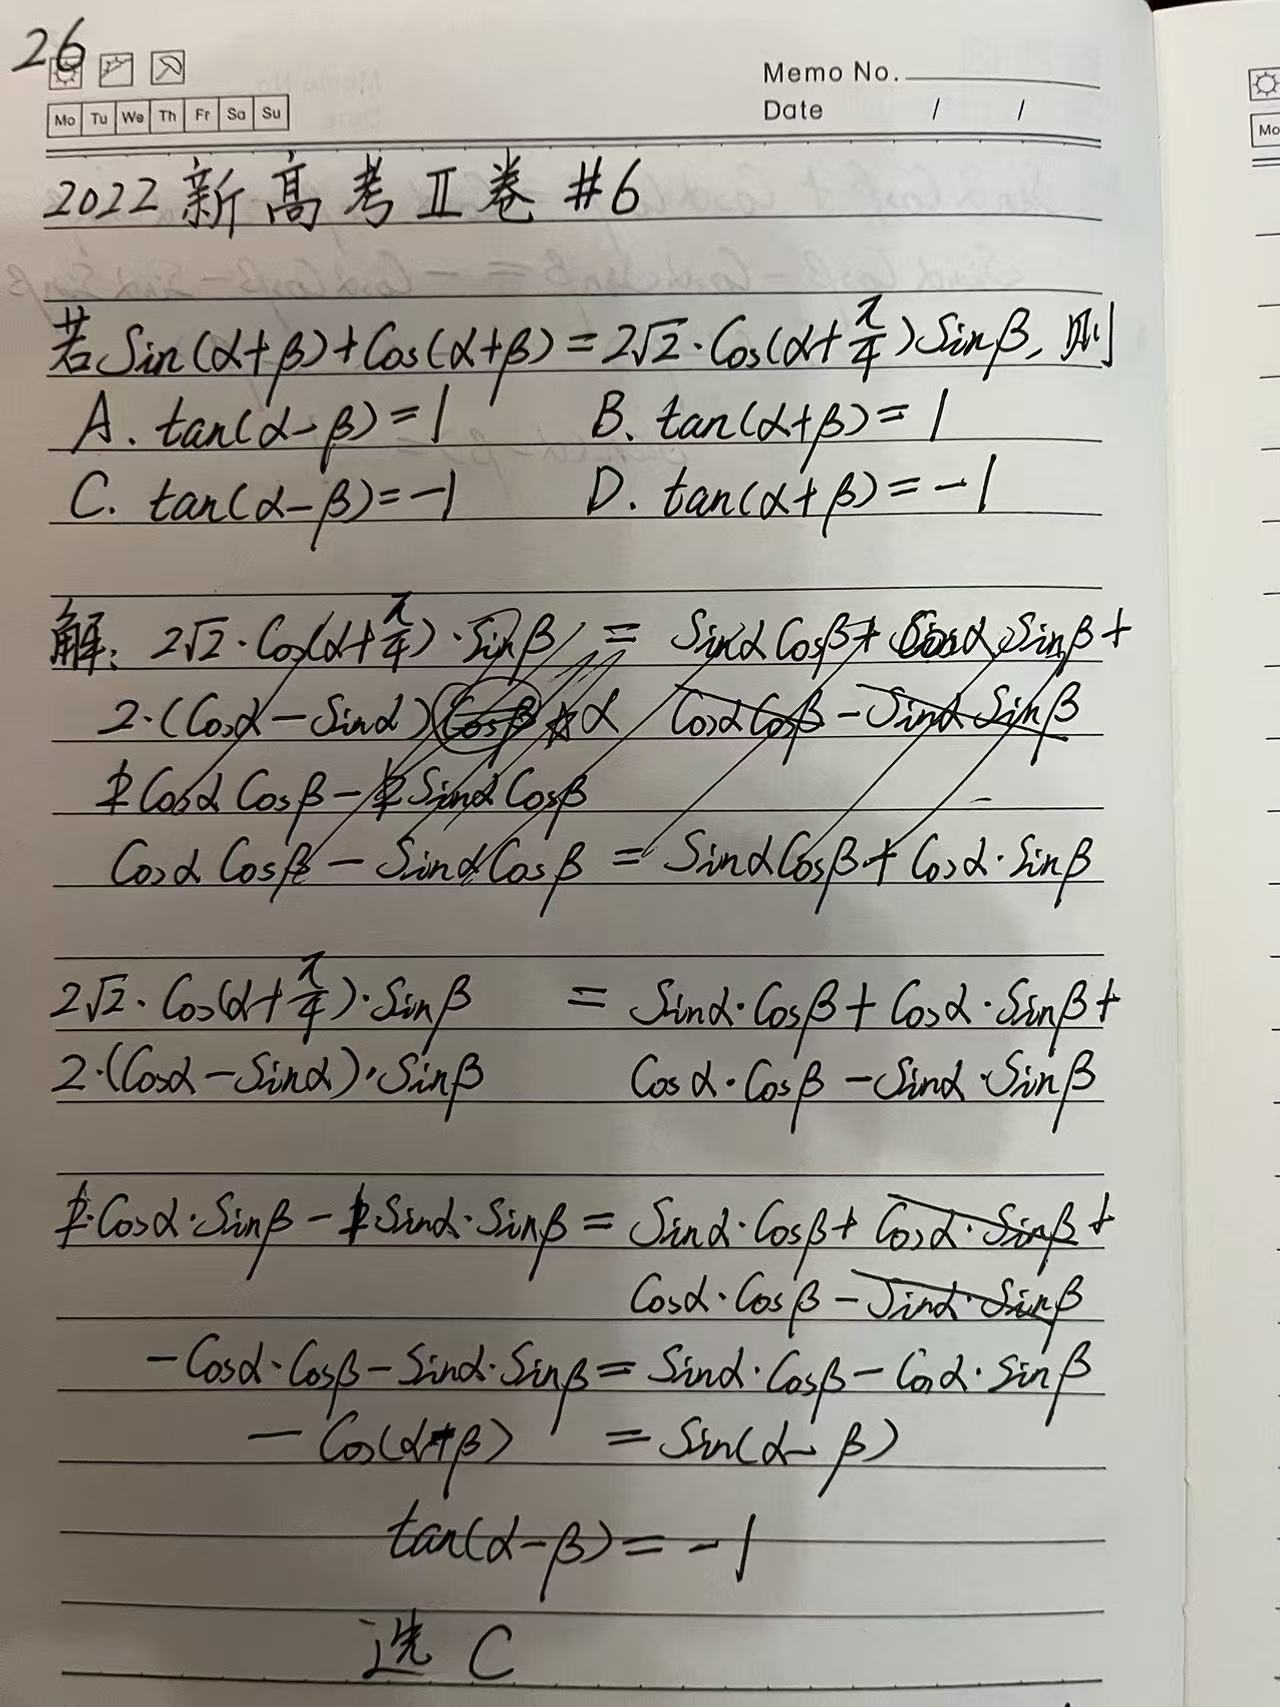 26
Memo No.
Mo Tu We Th Fr Sa Su
Date / /
2022 新高考 II 卷 #6
若 Sin(α+β)+Cos(α+β)=2√2·Cos(α+π/4)Sinβ, 则
A. tan(α-β)=1 B. tan(α+β)=1
C. tan(α-β)=-1 D. tan(α+β)=-1
解: 2√2·Cos(α+π/4)·Sinβ = SinαCosβ+CosαSinβ+
2·(Cosα-Sinα)Cosβ α CosαCosβ-SinαSinβ
CosαCosβ-SinαCosβ
CosαCosβ-SinαCosβ = SinαCosβ+Cosα·Sinβ
2√2·Cos(α+π/4)·Sinβ = Sinα·Cosβ+Cosα·Sinβ+
2·(Cosα-Sinα)·Sinβ Cosα·Cosβ-Sinα·Sinβ
2·Cosα·Sinβ-2Sinα·Sinβ=Sinα·Cosβ+Cosα·Sinβ+
Cosα·Cosβ-Sinα·Sinβ
-Cosα·Cosβ-Sinα·Sinβ=Sinα·Cosβ-Cosα·Sinβ
-Cos(α-β) =Sin(α-β)
tan(α-β)=-1
选 C
Mo